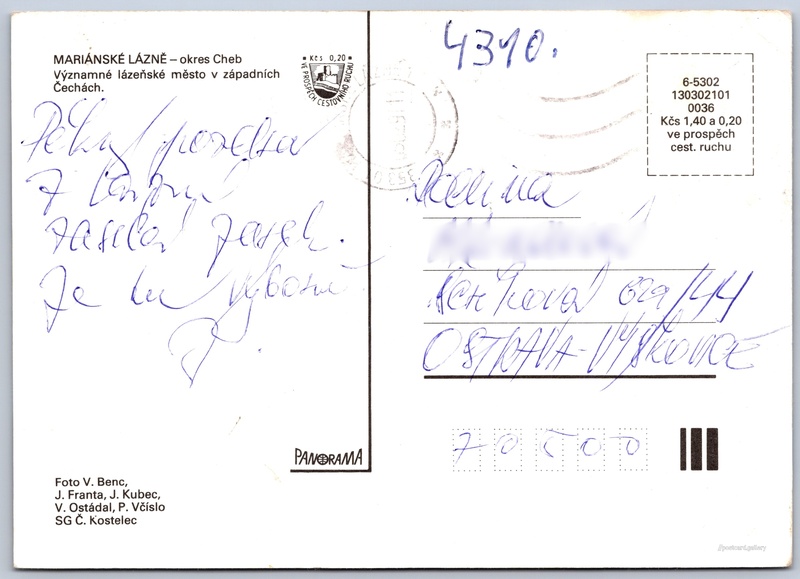 MARIÁNSKÉ LÁZNĚ – okres Cheb
Významné lázeňské město v západních
Čechách.
Kčs 0,20
VE PROSPĚCH CESTOVNÍHO RUCHU
Pěkný pozdrav
z lázní
zasílá
Je tu výborně
P.
PANORAMA
Foto V. Benc,
J. Franta, J. Kubec,
V. Ostádal, P. Včíslo
SG Č. Kostelec
4310.
6-5302
130302101
0036
Kčs 1,40 a 0,20
ve prospěch
cest. ruchu
Rodina
629/44
OSTRAVA-VÝŠKOVICE
70500